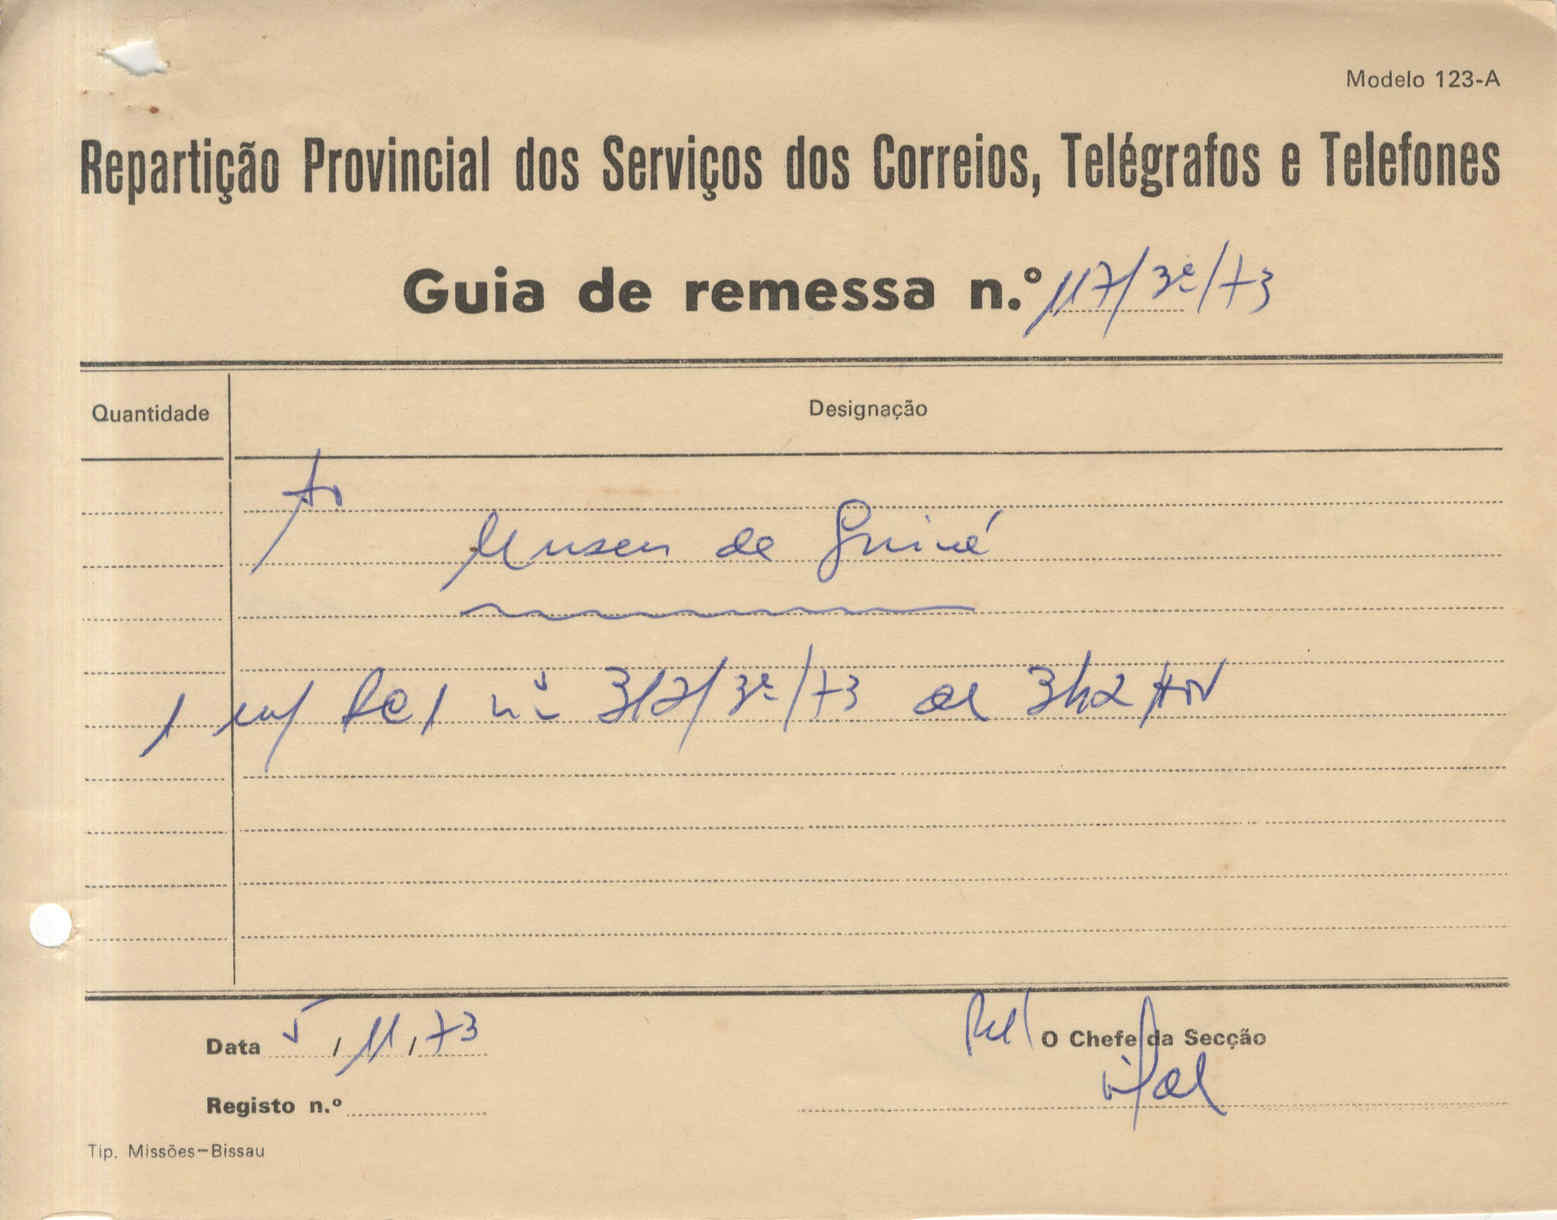 Modelo 123-A
Repartição Provincial dos Serviços dos Correios, Telégrafos e Telefones
Guia de remessa n.º 117/3ª/73
Quantidade Designação
Ao
Museu da Guiné
1 nº 312/3ª/73
Data 5/11/73
Pel' O Chefe da Secção
Registo n.º
Tip. Missões-Bissau